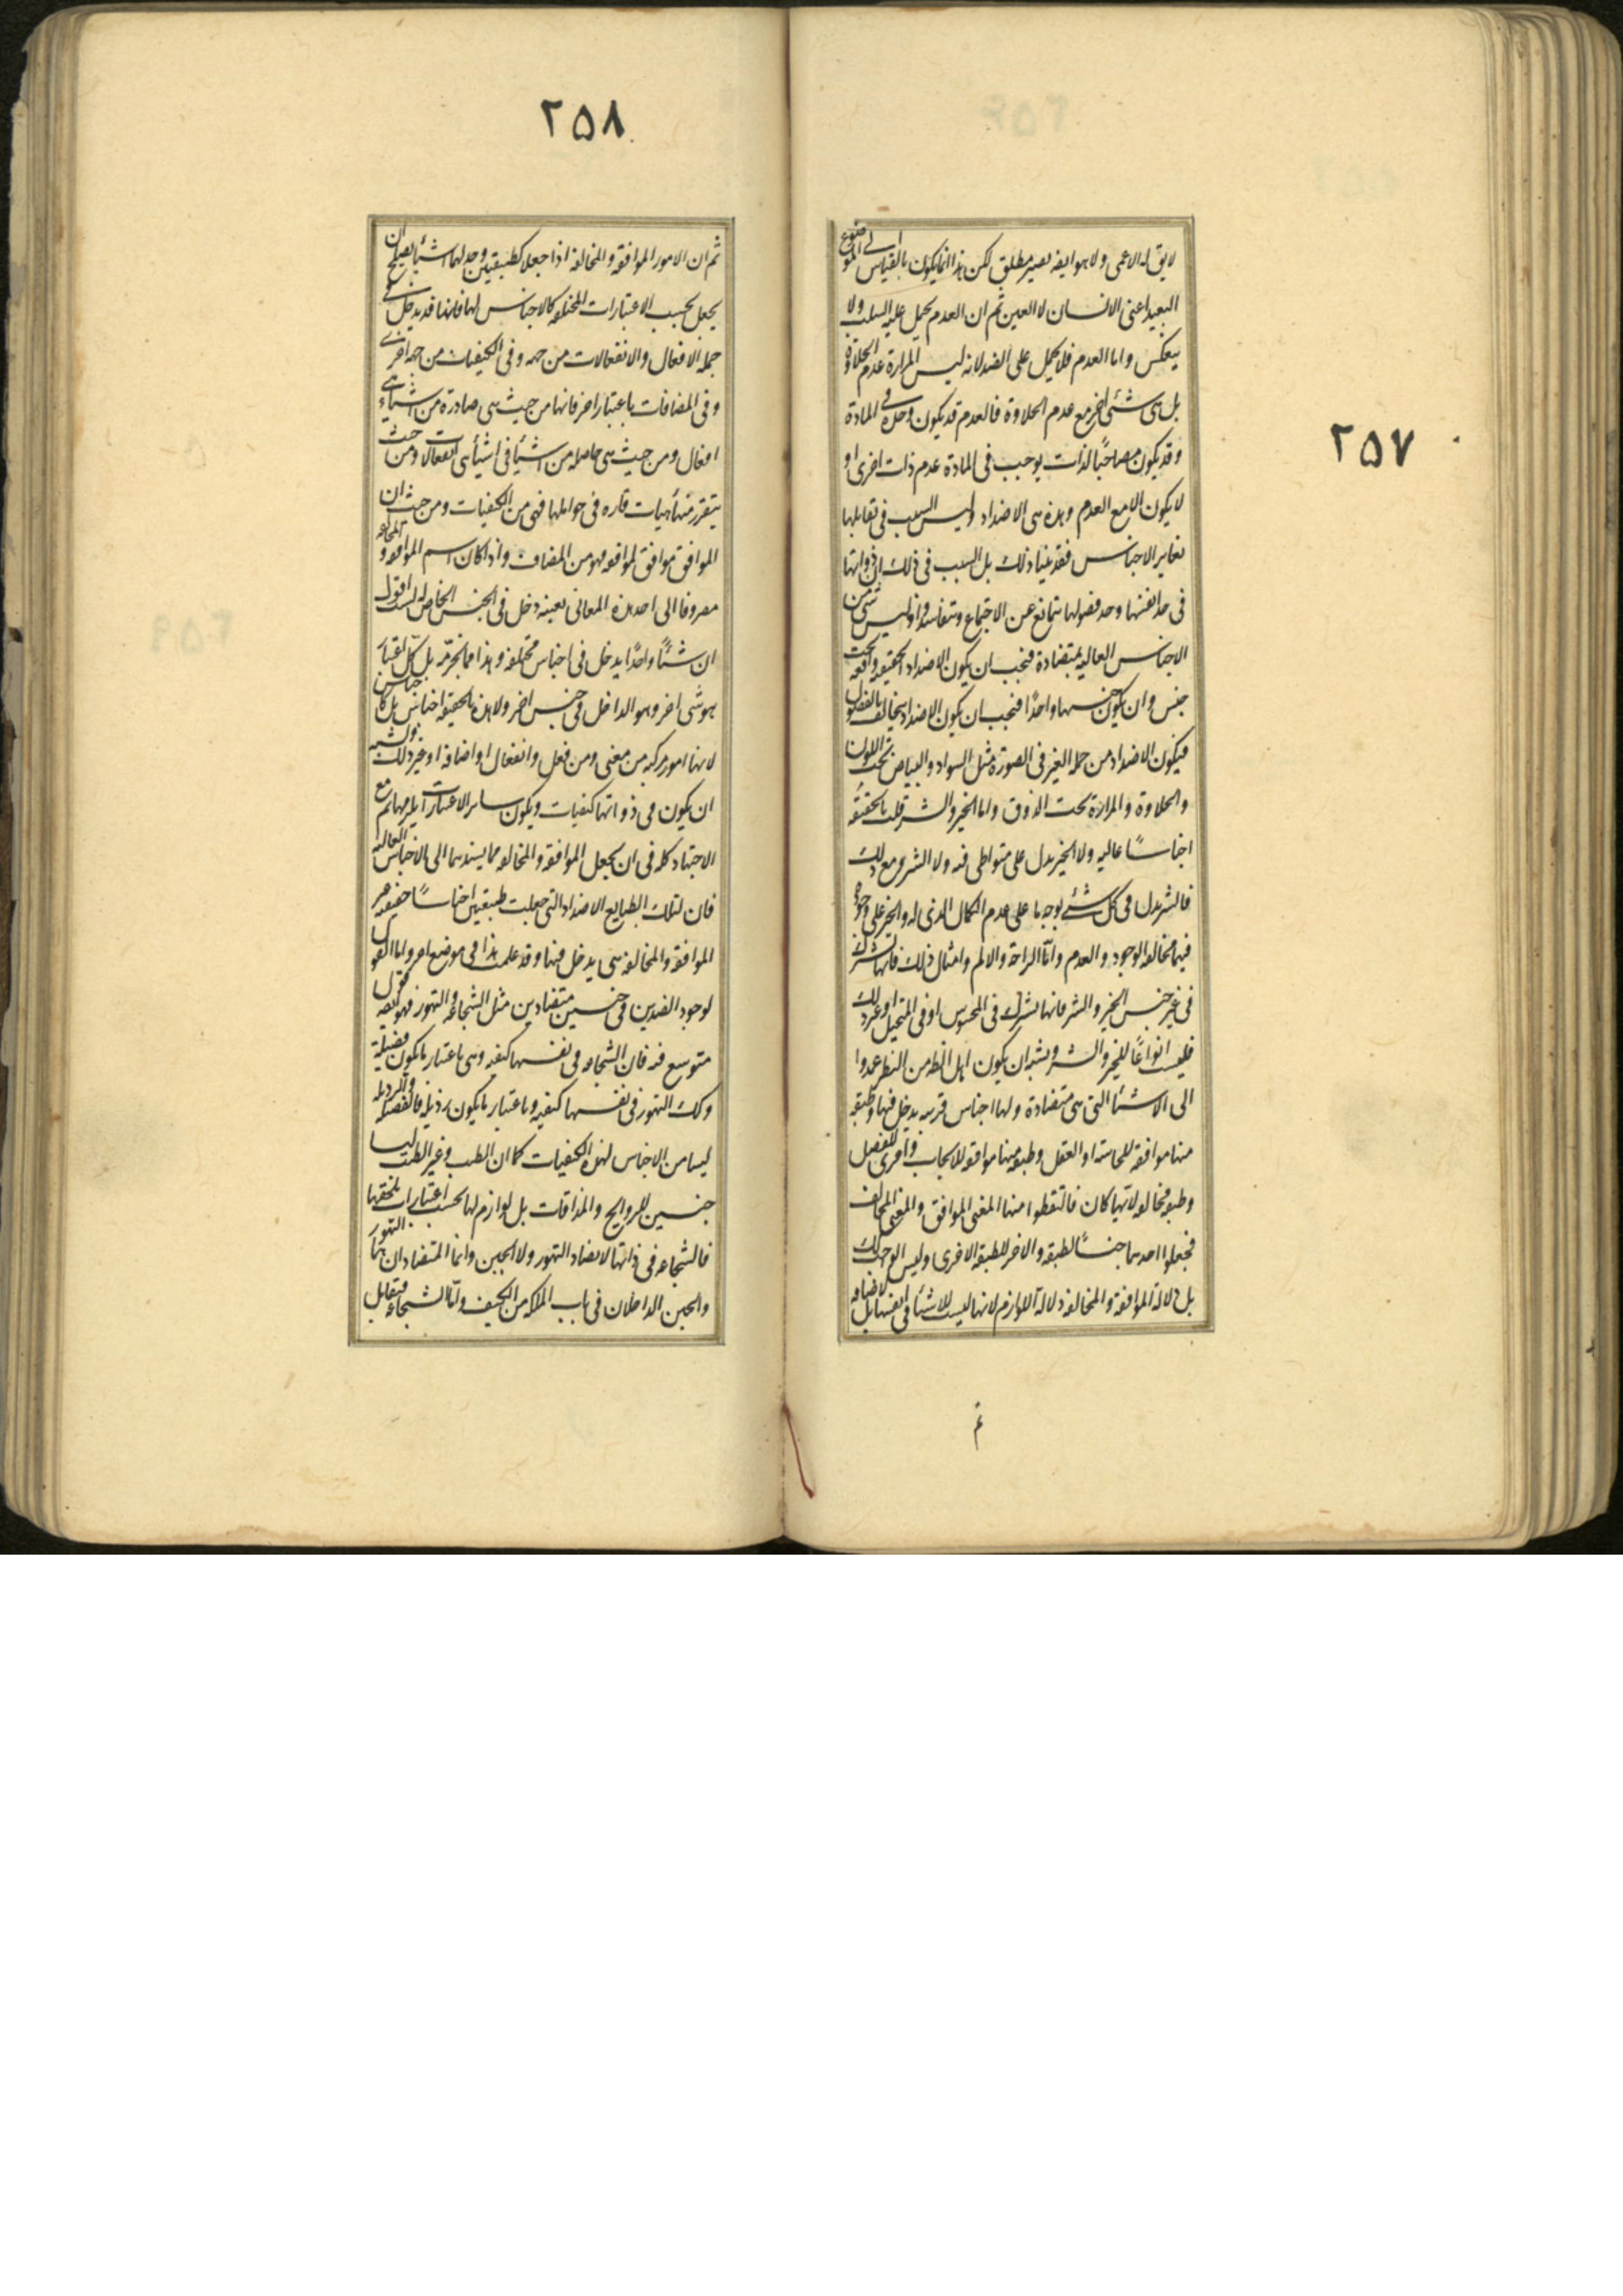 ٢٥٧
لا يق له الاعمى ولا هو ايضه بصير مطلق لكن هذا انما يكون بالقياس الى الموضوع
البعيد اعنى الانسان لا العين ثم ان العدم يحمل عليه السلب ولا
ينعكس واما العدم فلا يحمل على الضد لانه ليس المرارة عدم الحلاوة
بل هى شئ اخر مع عدم الحلاوة فالعدم قد يكون وحده فى المادة
وقد يكون مصاحبًا لذات يوجب فى المادة عدم ذات اخرى او
لا يكون الا مع العدم وهذه هى الاضداد وليس السبب فى تقابلها
تغاير الاجناس فقد بينا ذلك بل السبب فى ذلك ان ذواتها
فى حد انفسها وحد فصولها يتمانع عن الاجتماع ويتفاسد واذ ليس شئ من
الاجناس العاليه بمتضادة فيجب ان يكون الاضداد الحقيقيه واقعه تحت
جنس وان يكون جنسها واحدًا فيجب ان يكون الاضداد يتخالف بالفصول
فيكون الاضداد من جمله الغير فى الصورة مثل السواد والبياض تحت اللون
والحلاوة والمرارة تحت الذوق واما الخير والشر فليست بالحقيقه
اجناسًا عاليه ولا الخير يدل على متواطى فيه ولا الشر ومع ذلك
فالشر يدل فى كل شئ بوجه ما على عدم الكمال الذى له والخير على وجوده
فبينهما مخالفه الوجود والعدم وامّا الراحة والالم وامثال ذلك فانها تشترك
فى غير جنس الخير والشر فانها تشترك فى المحسوس او فى المتخيل او غير ذلك
فليست انواعًا للخير والشر ويشبه ان يكون اهل الظاهر من النظر عمدوا
الى الاشيأ التى هى متضادة ولها اجناس قريبه يدخل فيها وطبقه
منها موافقه للحاسة او العقل وطبقه منها موافقه للايجاب واخرى للفصيل
وطبقه مخالفه لايها كان فالتقطوا منها المعنى الموافق والمعنى المخالف
فجعلوا احدهما جنسًا لطبقه والاخر للطبقه الاخرى وليس الوجه كذلك
بل دلالة الموافقة والمخالفة دلالة اللوازم لانها ليست للاشيأ فى انفسها بل لاضافه
ثم
٢٥٨
ثم ان الامور الموافقه والمخالفه اذا جعلا كطبيعتين وجد لهما اشيأ يصلح ان
يجعل بحسب الاعتبارات المختلفه كالاجناس لها فانها قد يدخل فى
جمله الافعال والانفعالات من جهه وفى الكيفيات من جهه اخرى
وفى المضافات باعتبار اخر فانها من حيث هى صادرة من اشياء هى
افعال ومن حيث هى حاصله من اشيأ فى اشيأ هى انفعالات ومن حيث
يتقرر منها هيات قاره فى حواملها فهى من الكيفيات ومن حيث ان
الموافق موافق لموافقه فهو من المضاف واذا كان اسم الموافقه والمخالفه
مصروفا الى احد هذه المعانى بعينه دخل فى الجنس الخاص له لست اقول
ان شئًا واحدًا يدخل فى اجناس مختلفه وهذا مما نحرّمه بل كل اعتبار
هو شى اخر وهو الداخل فى جنس اخر ولا هذه بالحقيقه اجناس بل كاجناس
لانها امور مركبه من معنى ومن فعل وانفعال او اضافه او غير ذلك ويشبه
ان يكون فى ذواتها كيفيات ويكون ساير الاعتبارات يلزمها ثم مع
الاجتهاد كله فى ان يجعل الموافقه والمخالفه مما يسندهما الى الاجناس العاليه
فان لتلك الطبايع الاضداد التى جعلت طبقتين اجناسًا حقيقيه غير
الموافقة والمخالفة هى يدخل فيها وقد علمت هذا فى موضع اخر واما القول
لوجود الضدين فى جنسين متضادين مثل الشجاعه والتهور فهو ايضه قول
متوسع فيه فان الشجاعه فى نفسها كيفيه وهى باعتبار ما يكون فضيلة
وكك التهور فى نفسها كيفيه وباعتبار ما يكون رذيله فالفضيله والرذيله
ليسا من الاجناس لهذه الكيفيات كما ان الطيب وغير الطيب ليسا
جنسين للروايح والمذاقات بل لوازم لها بحسب اعتبارات تلحقها
فالشجاعه فى ذاتها لا يضاد التهور ولا الجبن وانما المتضادان هما التهور
والجبن الداخلان فى باب الملكه من الكيف وامّا الشجاعه فتقابل